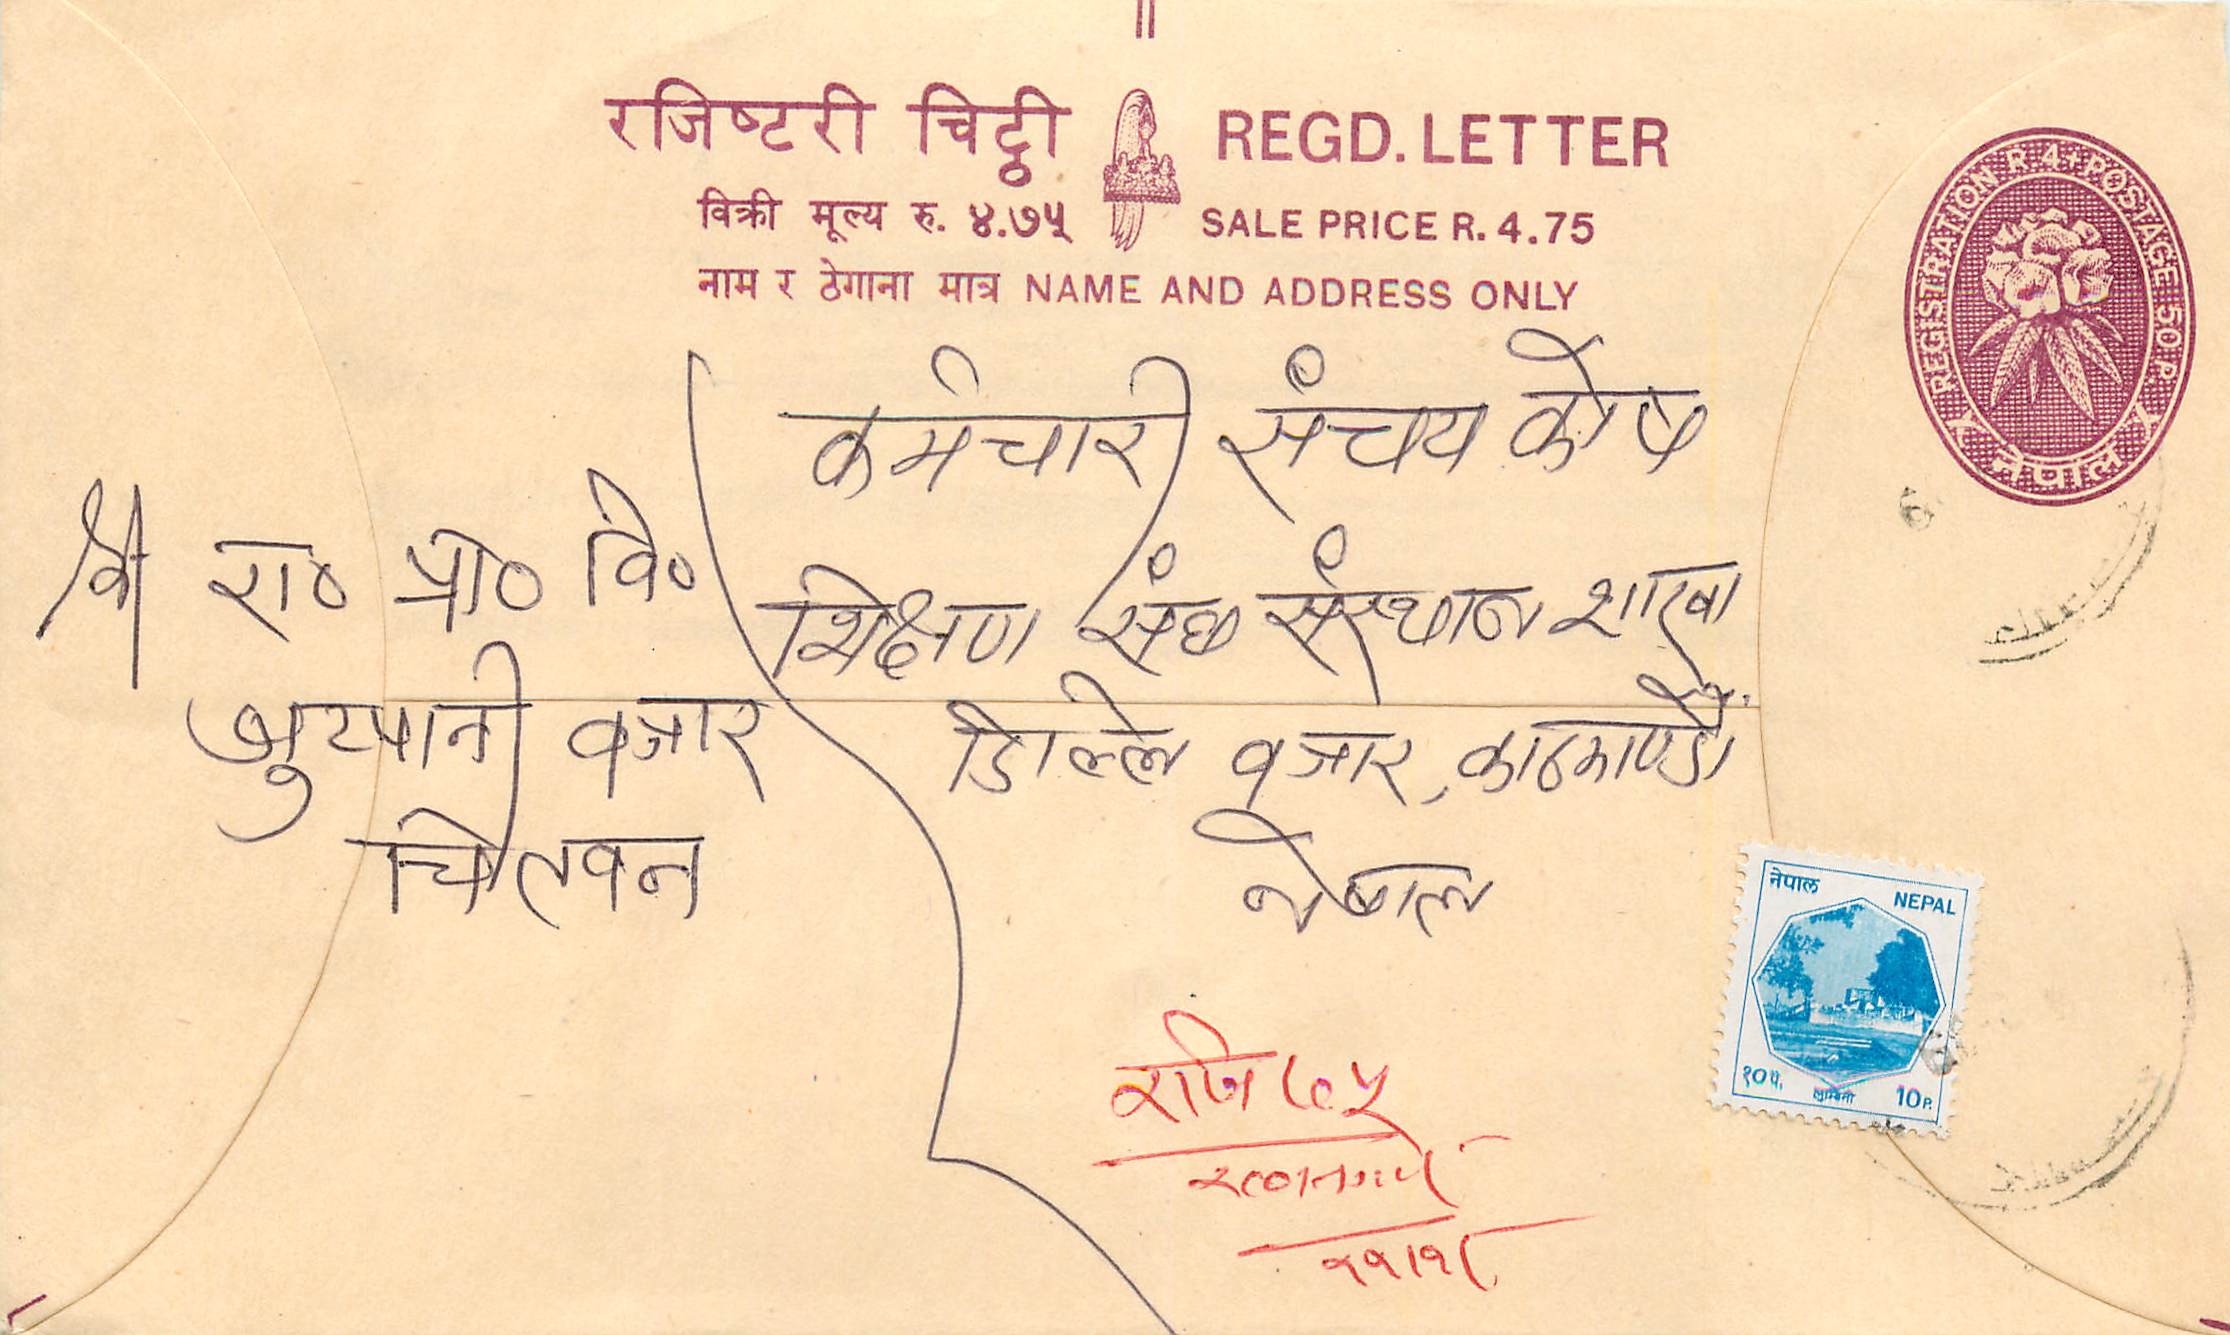 रजिष्टरी चिट्ठी REGD. LETTER
विक्री मूल्य रु. ४.७५ SALE PRICE R. 4.75
नाम र ठेगाना मात्र NAME AND ADDRESS ONLY
REGISTRATION R.4+POSTAGE 50 P.
नेपाल
कर्मचारी संचय कोष
शिक्षण संघ संस्थान शाखा
डिल्ले बजार, काठमाण्डौ
नेपाल
श्री रा० प्रा० वि०
भुटपानी बजार
चितवन
नेपाल NEPAL
१० पै. लुम्बिनी 10 P.
रजि